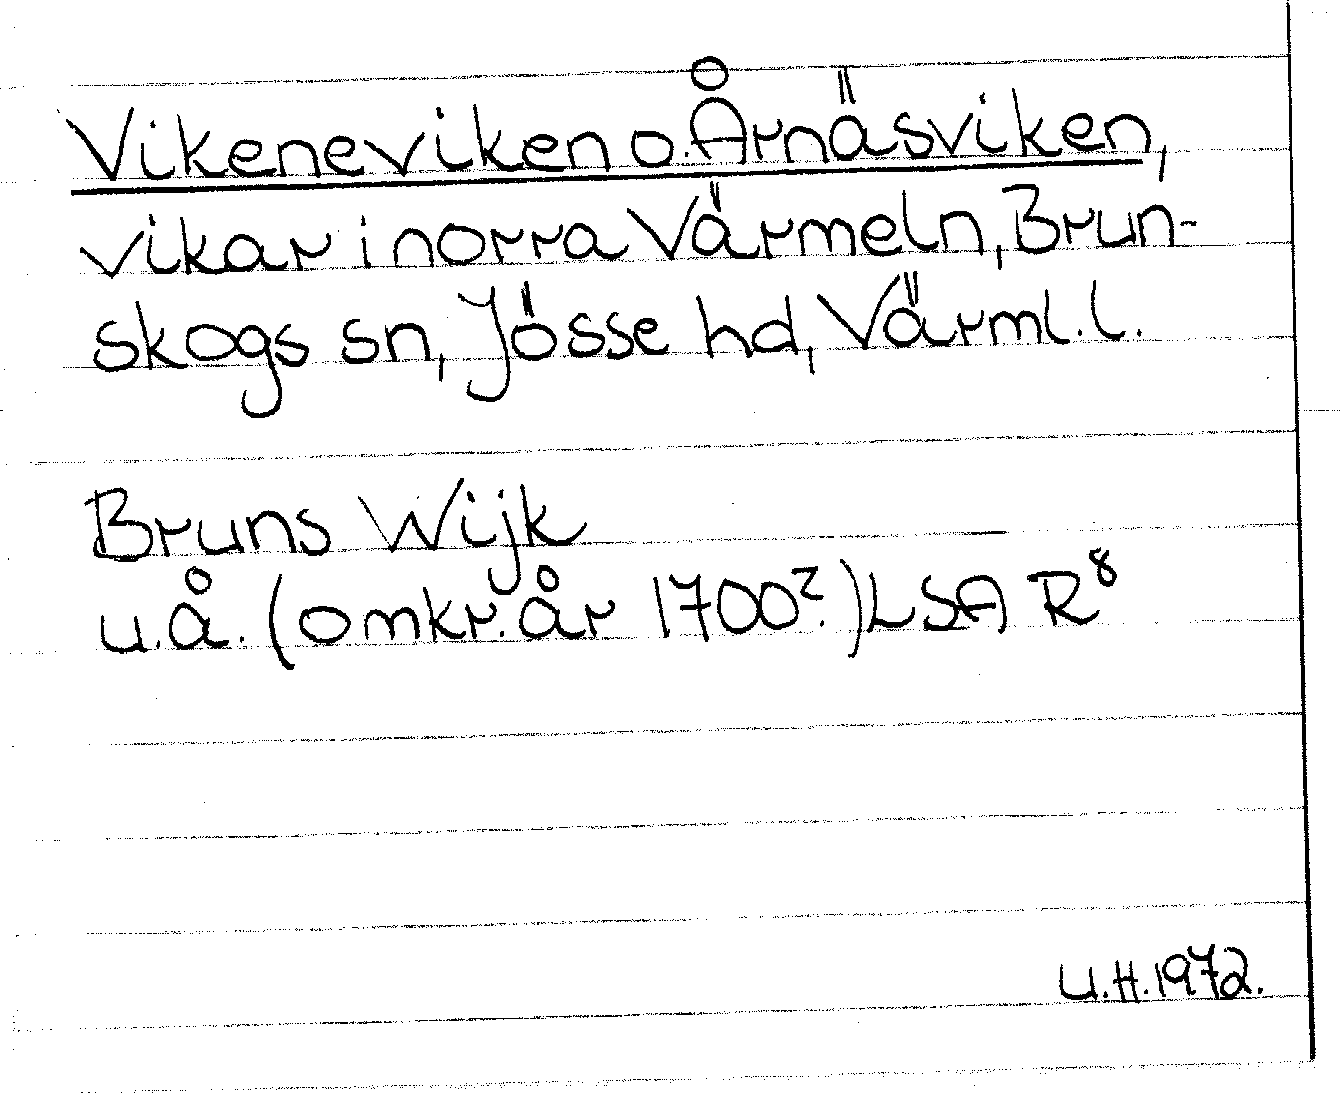 Vikeneviken o. Årnäsviken,
vikar i norra Värmeln, Brun-
skogs sn, Jösse hd, Värml. l.
Bruns Wijk
u.å. (omkr. år 1700?) LSA R⁸
U.H. 1972.